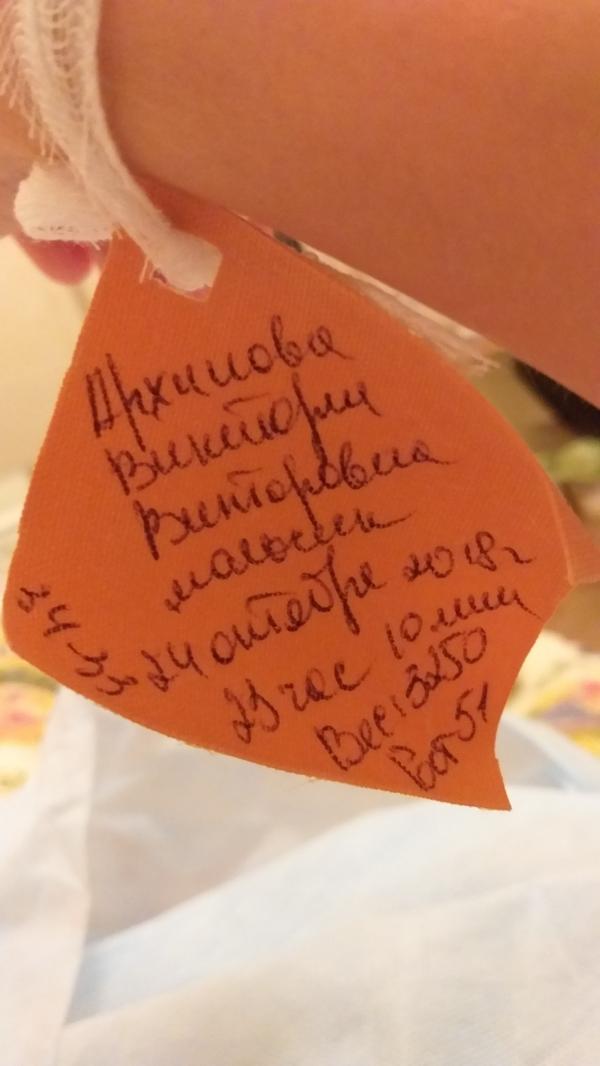 Архипова
Виктори
Викторовна
мальчик
24 октебре 2018 г
23 час 10 мин
Вес: 3250
Рост 51